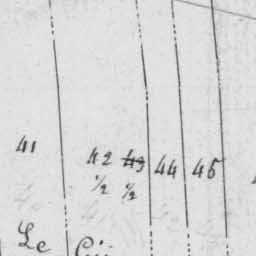 41 42 43 44 45
½ ½
Le